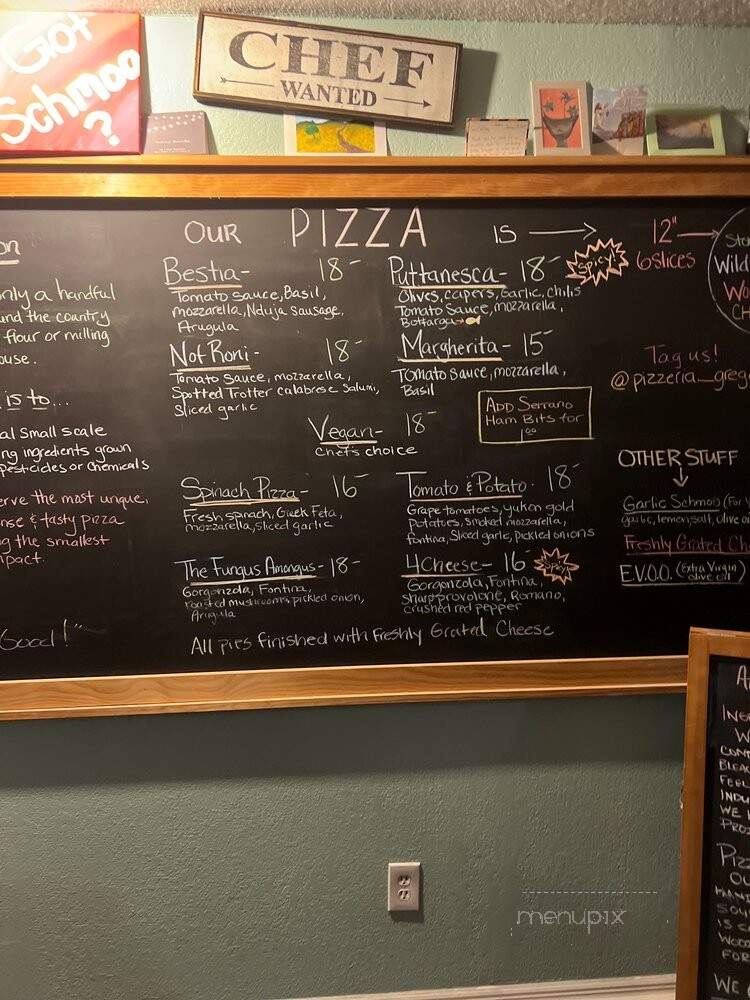 Got
Schmoo
?
CHEF
WANTED
only a handful
flour or milling
is to...
al small scale
ing ingredients grown
pesticides or chemicals
erve the most unque,
nse & tasty pizza
g the smallest
mpact.
Good!"
OUR PIZZA IS
12"
6 slices
Bestia- 18-
Tomato sauce, Basil,
mozzarella, Nduja sausage,
Arugula
Not Roni- 18-
Tomato sauce, mozzarella,
Spotted Trotter calabrese Salumi,
Sliced garlic
Puttanesca- 18- Spicy!
Olives, capers, Garlic, chilis
Tomato Sauce, mozzarella,
Bottarga
Margherita- 15-
Tomato sauce, mozzarella,
Basil
Vegan- 18-
chef's choice
ADD Serrano
Ham Bits for
1.00
Spinach Pizza- 16-
Fresh spinach, Greek Feta,
mozzarella, sliced garlic
Tomato & Potato- 18-
Grape tomatoes, yukon gold
potatoes, smoked mozzarella,
fontina, sliced garlic, pickled onions
The Fungus Amongus- 18-
Gorgonzola, Fontina,
roasted mushrooms, pickled onion,
Arugula
4Cheese- 16- Spicy
Gorgonzola, Fontina,
sharp provolone, Romano,
crushed red pepper
All pies finished with Freshly Grated Cheese
Wild
Tag us!
@pizzeria_greg
OTHER STUFF
Garlic Schmoo (For
garlic, lemon, salt, olive o
Freshly Grated Ch
E.V.O.O. (Extra Virgin
olive oil)
W
CON
BLEAC
FEEL
INDU
WE
PRO
PIZZ
OU
HAN
SOU
IS C
WOOD
FOR
WE
menupix